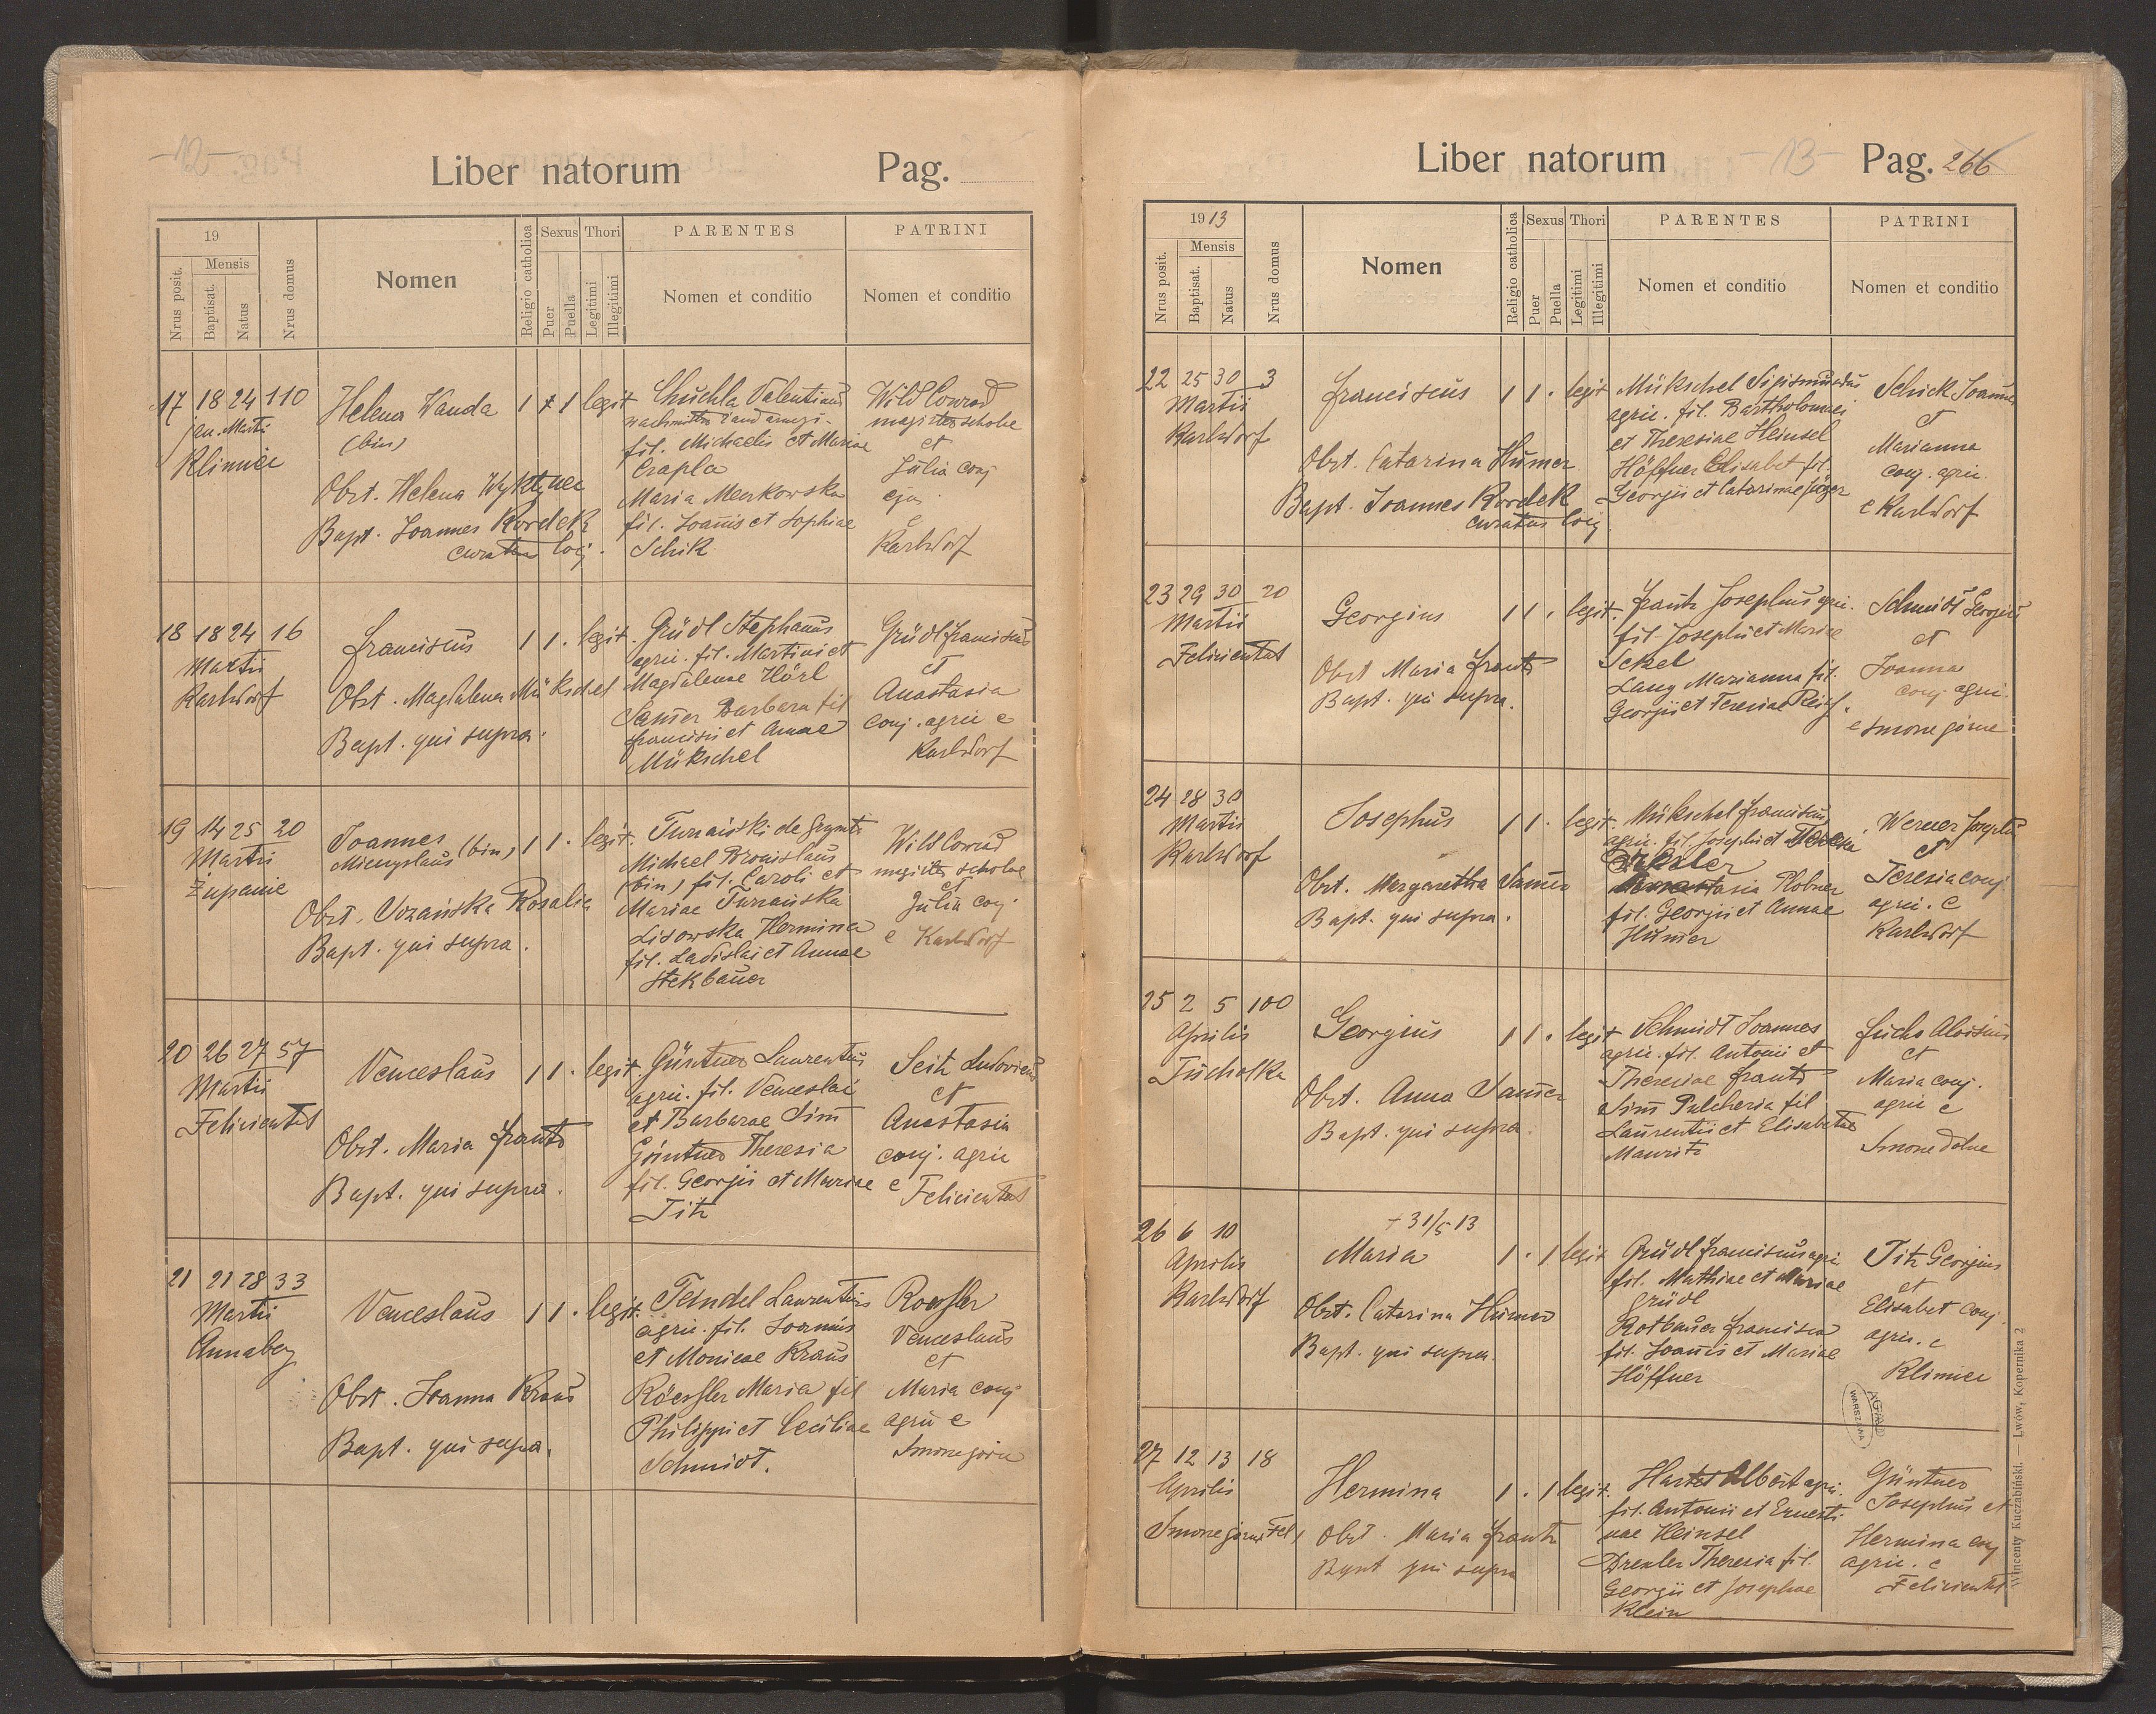 -12-
Liber natorum Pag.
19
Mensis
Nrus posit.
Baptisat.
Natus
Nrus domus
Nomen
Religio catholica
Sexus
Puer
Puella
Thori
Legitimi
Illegitimi
PARENTES
Nomen et conditio
PATRINI
Nomen et conditio
17 18 24 110
Jan. Martii
Klimiec
Helena Wanda
(bin)
Obst. Helena
Bapt. Joannes Kordek
curatus loci.
1 1 legit
Chuchla Valentinus
fil. Michaelis et Mariae
Czapla
Maria Merkowska
fil. Joannis et Sophiae
Schik
Wild Conrad
magister scholae
et
Julia conj
ejus
e
Karlsdorf
18 18 24 16
Martii
Karlsdorf
Franciscus
Obst. Magdalena Mükschel
Bapt. qui supra.
1 1 . legit.
Gründl Stephanus
agric. fil. Martini et
Magdalenae Hörl
Samer Barbara fil
Francisci et Annae
Mükschel
Gründl Franciscus
et
Anastasia
conj. agric e
Karlsdorf
19 14 25 20
Martii
Żupanie
Joannes
Miecyslaus (bin)
Obst. Rosalia
Bapt. qui supra.
1 1 . legit.
Michael Bronislaus
(bin) fil. Caroli et
Mariae Turnaiska
Lisowska Hermina
fil. Ladislai et Annae
Stekbauer
Wild Conrad
magister scholae
et
Julia conj.
e Karlsdorf
20 26 27 57
Martii
Felicienthal
Venceslaus
Obst. Maria Frantz
Bapt. qui supra.
1 1 . legit.
Güntner Laurentius
agric. fil. Venceslai
et Barbarae Simm
Güntner Theresia
fil. Georgii et Mariae
Titz
Seitz Ludovicus
et
Anastasia
conj. agric
e Felicienthal
21 21 28 33
Martii
Annaberg
Venceslaus
Obst. Joanna Kraus
Bapt. qui supra.
1 1 . legit.
Tendel Laurentius
agric. fil. Joannis
et Monicae Kraus
Röessler Maria fil
Philippi et Ceciliae
Schmidt.
Roessler
Venceslaus
et
Maria conj
agric e
Smorze górne
Liber natorum -13- Pag. 266
1913
Mensis
Nrus posit.
Baptisat.
Natus
Nrus domus
Nomen
Religio catholica
Sexus
Puer
Puella
Thori
Legitimi
Illegitimi
PARENTES
Nomen et conditio
PATRINI
Nomen et conditio
22 25 30 3
Martii
Karlsdorf
Franciscus
Obst. Catarina Humer
Bapt. Joannes Kordek
curatus loci.
1 1 . legit
Mükschel Sigismundus
agric. fil. Bartholomaei
et Theresiae Heinsel
Höffner Elisabet fil.
Georgii et Catarinae Jäger
Schick Joannes
et
Marianna
conj. agric.
e Karlsdorf
23 29 30 20
Martii
Felicienthal
Georgius
Obst Maria Frantz
Bapt. qui supra.
1 1 . legit.
Frantz Josephus agric.
fil. Josephi et Mariae
Lang Marianna fil.
Georgii et Teresiae
Schmidt Georgius
et
Joanna
conj. agric.
e Smorze górne
24 28 30
Martii
Karlsdorf
Josephus
Obst. Margaretha Samer
Bapt. qui supra.
1 1 . legit.
Mükschel Franciscus
agric. fil. Josephi et
Plobner
fil. Georgii et Annae
Humer
Werner Josephus
et
Teresia conj
agric. e
Karlsdorf
25 2 5 100
Aprilis
Tucholka
Georgius
Obst. Anna Samer
Bapt. qui supra.
1 1 . legit
Schmidt Joannes
agric. fil. Antonii et
Theresiae Frantz
Simm Pulcheria fil
Laurentii et Elisabethae
Mauritz
Fuchs Aloisius
et
Maria conj.
agric e
Smorze dolne
26 6 10
Aprilis
Karlsdorf
+31/5 13
Maria
Obst. Catarina Humer
Bapt. qui supra.
1 . 1 legit
Gründl Franciscus agric
fil. Mathiae et Mariae
Gründl
Rotbauer Francisca
fil. Joannis et Mariae
Höffner
Titz Georgius
et
Elisabet conj.
agric. e
Klimiec
AGAD
WARSZAWA
27 12 13 18
Aprilis
Smorze górne Fel)
Hermina
Obst. Maria Frantz
Bapt qui supra
1 . 1 legit.
Albert agric.
fil. Antonii et Ernesti-
nae Heinsel
Drexler Theresia fil.
Georgii et Josephae
Klein
Güntner
Josephus et
Hermina conj
agric. e
Felicienthal
Wincenty Kuczabiński. — Lwów, Kopernika 2